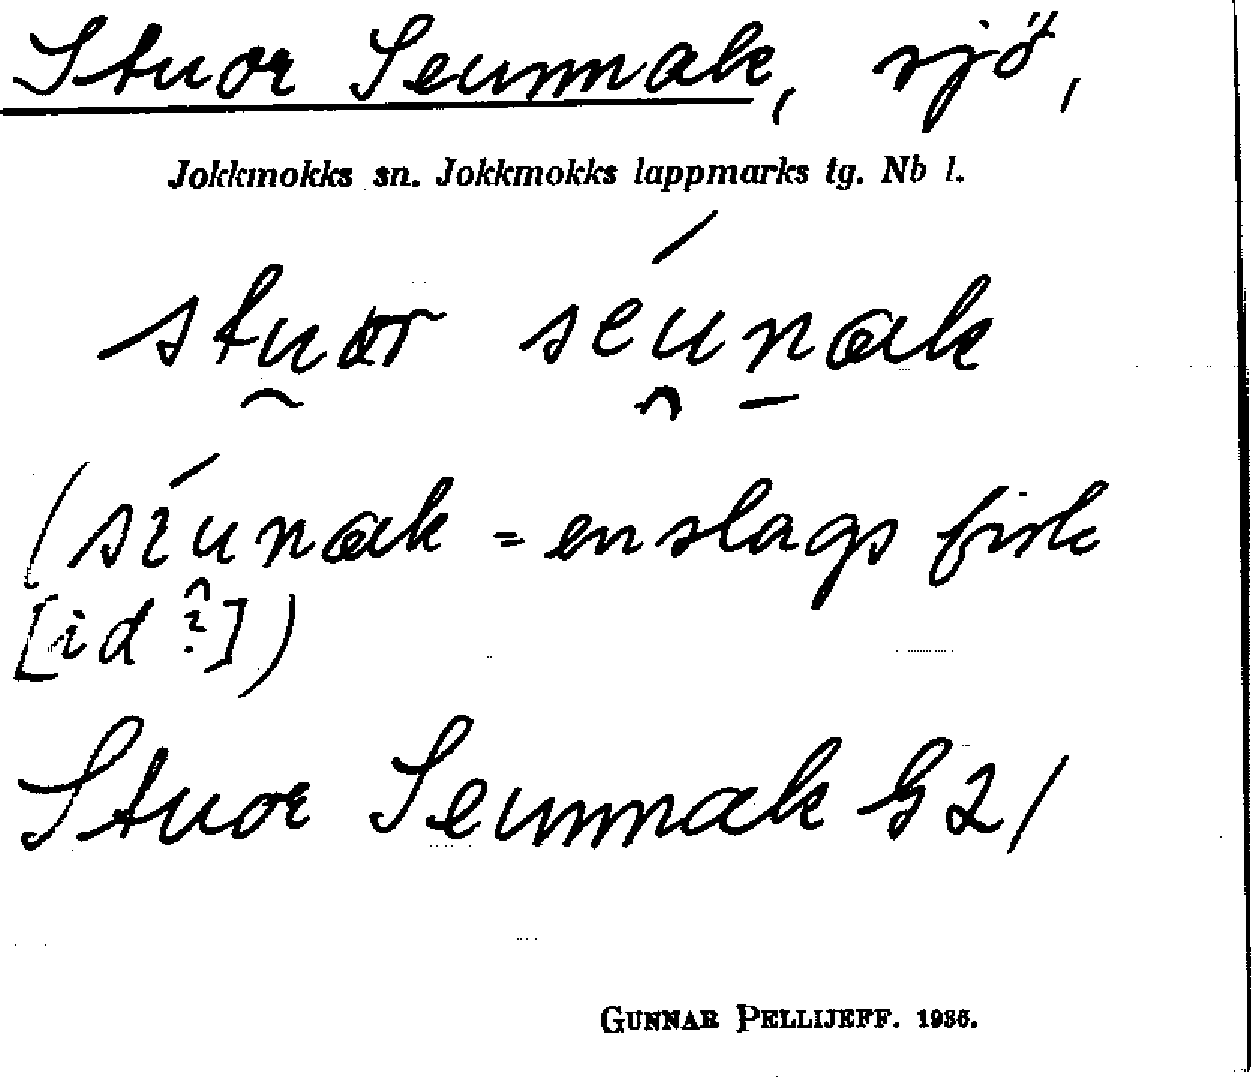 Stuor Seunnak, sjö,
Jokkmokks sn. Jokkmokks lappmarks tg. Nb l.
stu̯or séu̯n̠ak
(siú̯nak = en slags fisk
[id?])
Stuor Seunnak G21
GUNNAR PELLIJEFF. 1936.